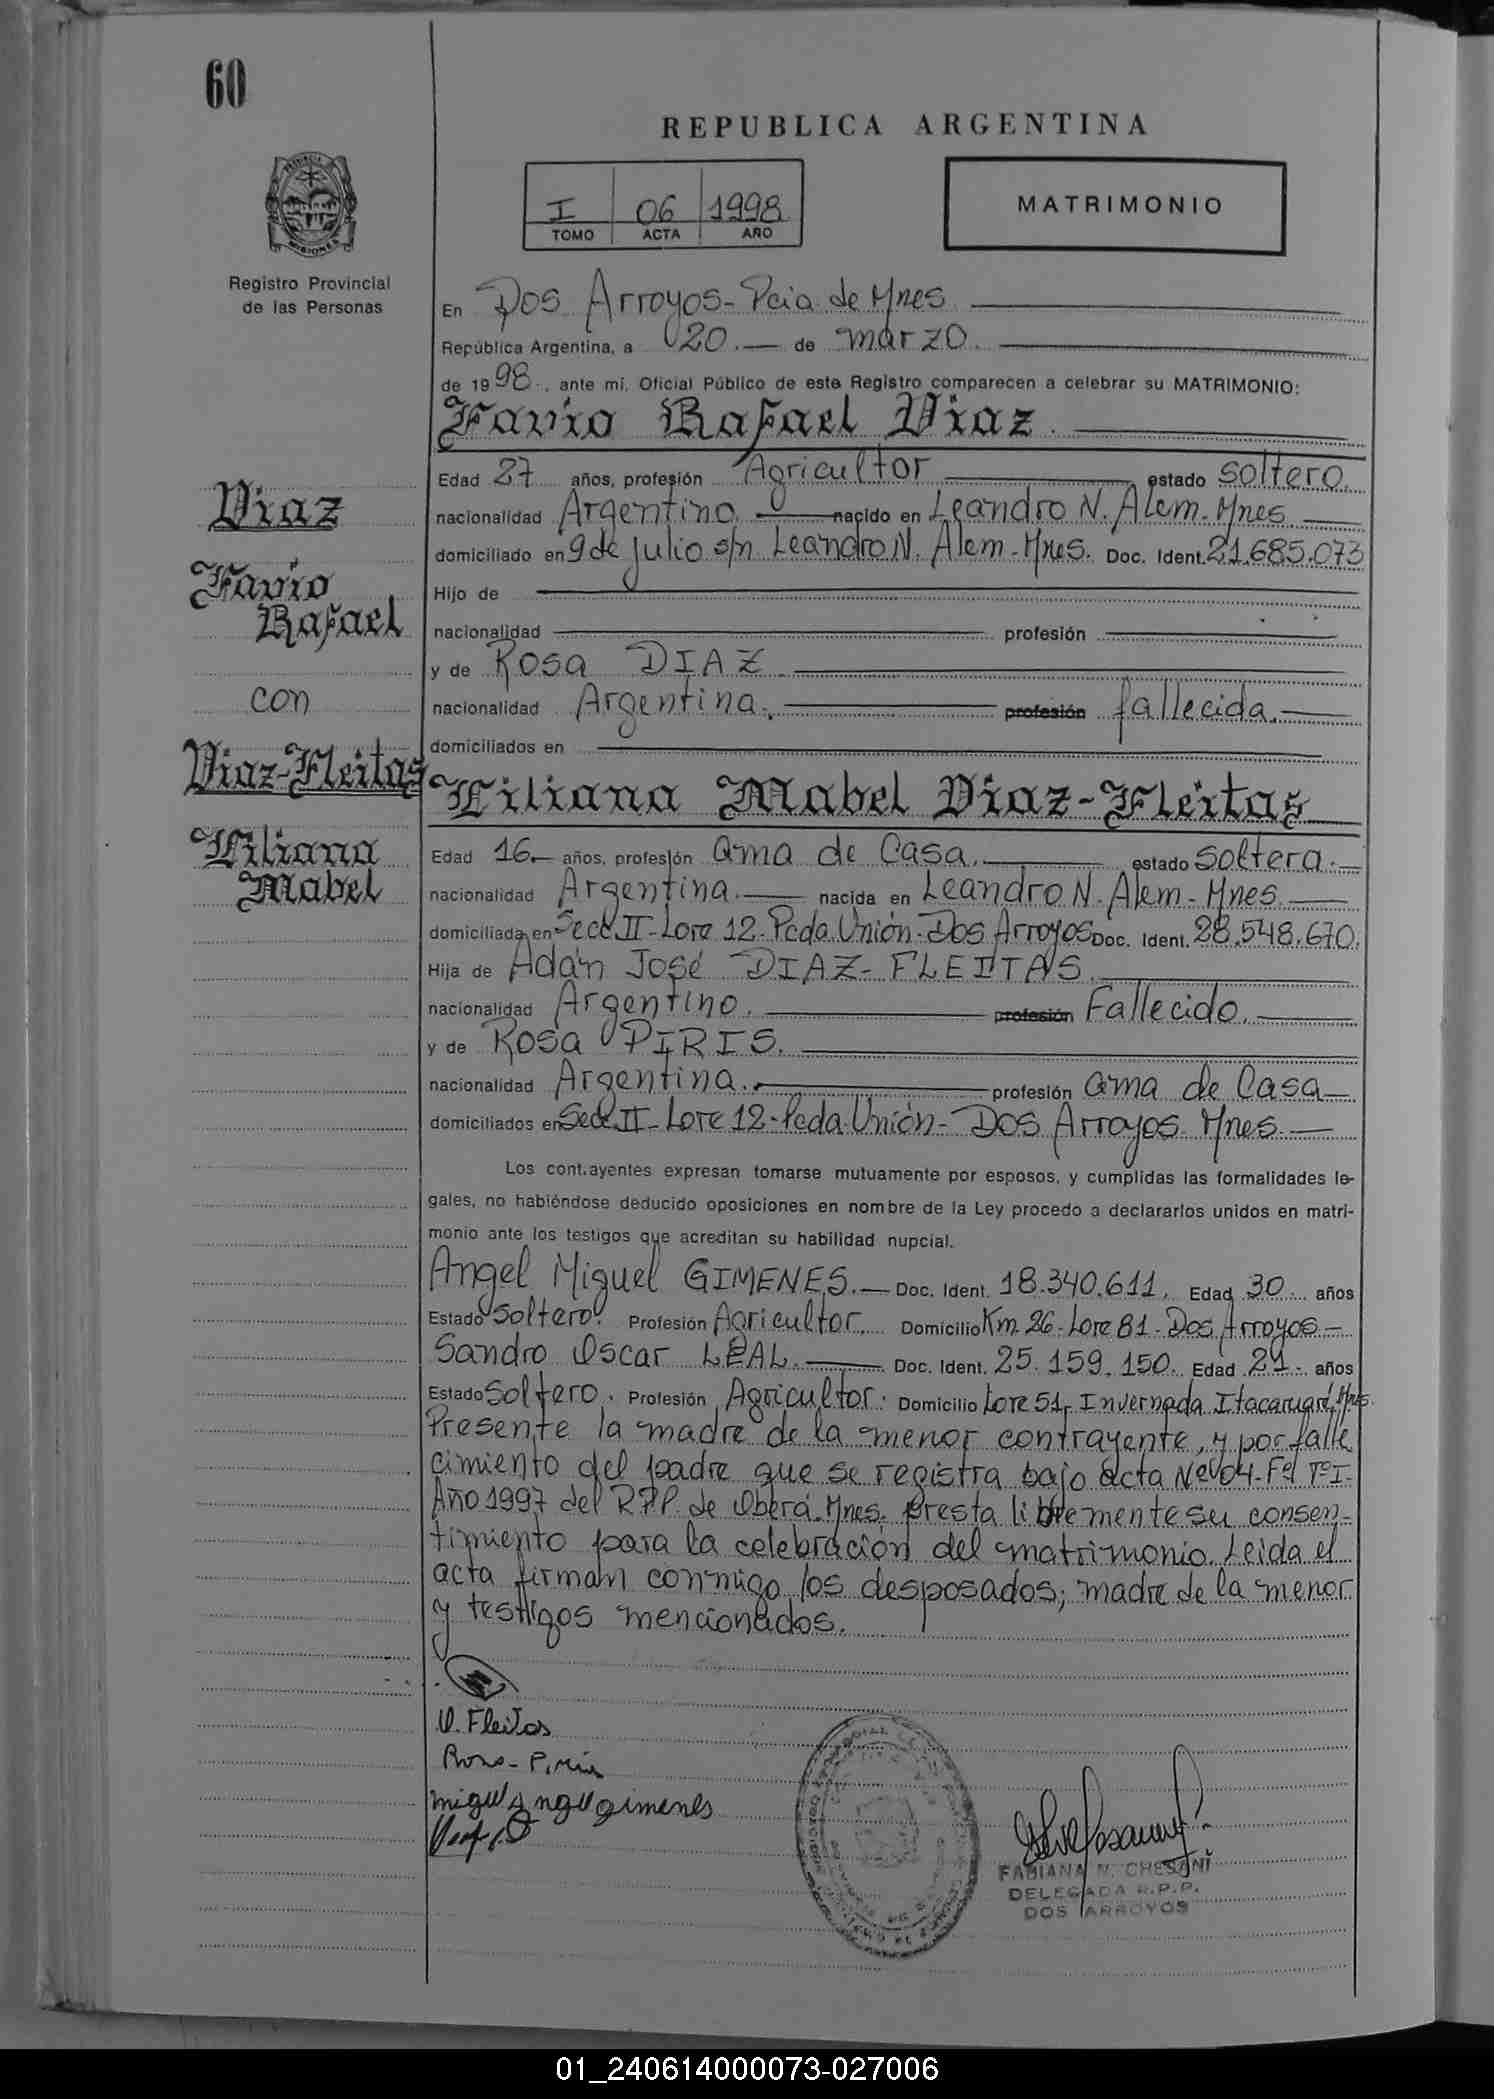 60
REPUBLICA ARGENTINA
I 06 1998
TOMO ACTA AÑO
MATRIMONIO
Registro Provincial
de las Personas
En Dos Arroyos - Pcia de Mnes.
República Argentina, a 20.— de marzo.
de 1998., ante mi, Oficial Público de este Registro comparecen a celebrar su MATRIMONIO:
Favio Rafael Diaz.
Edad 27 años, profesión Agricultor estado soltero.
nacionalidad Argentino. nacido en Leandro N. Alem - Mnes
domiciliado en 9 de julio s/n Leandro N. Alem - Mnes. Doc. Ident. 21.685.073
Hijo de
nacionalidad profesión
y de Rosa DIAZ
nacionalidad Argentina. profesión fallecida.
domiciliados en
Liliana Mabel Diaz-Fleitas
Edad 16.— años, profesión ama de Casa. estado soltera.
nacionalidad Argentina.— nacida en Leandro N. Alem - Mnes.
domiciliada en Secc. II - Lote 12 - Pcda. Unión - Dos Arroyos Doc. Ident. 28.548.670.
Hija de Adán José DIAZ-FLEITAS.
nacionalidad Argentino. profesión Fallecido.
y de Rosa PIRIS.
nacionalidad Argentina. profesión ama de Casa
domiciliados en Secc. II - Lote 12 - Pcda. Unión - Dos Arroyos Mnes.
Los contrayentes expresan tomarse mutuamente por esposos, y cumplidas las formalidades le-
gales, no habiéndose deducido oposiciones en nombre de la Ley procedo a declararlos unidos en matri-
monio ante los testigos que acreditan su habilidad nupcial.
Angel Miguel GIMENES.— Doc. Ident. 18.340.611. Edad 30 años
Estado Soltero. Profesión Agricultor. Domicilio Km. 26 - Lote 81 - Dos Arroyos
Sandro Oscar LEAL. Doc. Ident. 25.159.150. Edad 21 años
Estado Soltero. Profesión Agricultor. Domicilio Lote 51, Invernada Itacaruaré, Mnes.
Presente la madre de la menor contrayente, y por falle
cimiento del padre que se registra bajo acta Nº 04 - Fº Tº I -
Año 1997 del R.P.P. de Oberá. Mnes. presta libremente su consen-
timiento para la celebración del matrimonio. Leida el
acta firman conmigo los desposados; madre de la menor
y testigos mencionados.
Diaz
Favio
Rafael
con
Diaz-Fleitas
Liliana
Mabel
D. Fleitas
Rosa - Piris
miguel angel gimenes
FABIANA N. CHESANI
DELEGADA R.P.P.
DOS ARROYOS
01_240614000073-027006